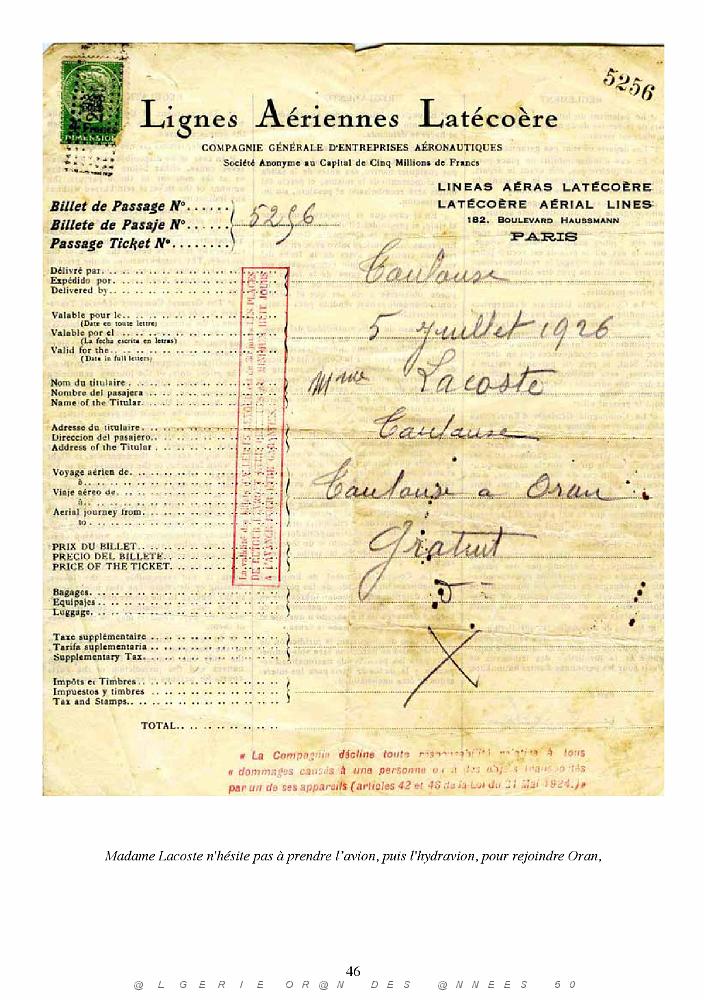 5256
Lignes Aériennes Latécoère
COMPAGNIE GÉNÉRALE D'ENTREPRISES AÉRONAUTIQUES
Société Anonyme au Capital de Cinq Millions de Francs
LINEAS AÉRAS LATÉCOÈRE
LATÉCOÈRE AÉRIAL LINES
182, BOULEVARD HAUSSMANN
PARIS
Billet de Passage Nº......
Billete de Pasaje Nº......
Passage Ticket Nº........
5256
Délivré par
Expédido por
Delivered by
Toulouse
Valable pour le
(Date en toute lettre)
Valable por el
(La fecha escrita en letras)
Valid for the
(Date in full letters)
5 Juillet 1926
Nom du titulaire
Nombre del pasajera
Name of the Titular
Mme Lacoste
Adresse du titulaire
Direccion del pasajero
Address of the Titular
Toulouse
Voyage aérien de
à
Viaje aéreo de
à
Aerial journey from
to
Toulouse a Oran
PRIX DU BILLET
PRECIO DEL BILLETE
PRICE OF THE TICKET
Gratuit
Bagages
Equipajes
Luggage
Taxe supplémentaire
Tarifa suplementaria
Supplementary Tax
Impôts et Timbres
Impuestos y timbres
Tax and Stamps
TOTAL
« La Compagnie décline toute responsabilité relative à tous
« dommages causés à une personne ou à des objets transportés
par un de ses appareils (articles 42 et 48 de la Loi du 31 Mai 1924.)»
Madame Lacoste n'hésite pas à prendre l'avion, puis l'hydravion, pour rejoindre Oran,
46
@ L G E R I E O R @ N D E S @ N N E E S 5 0